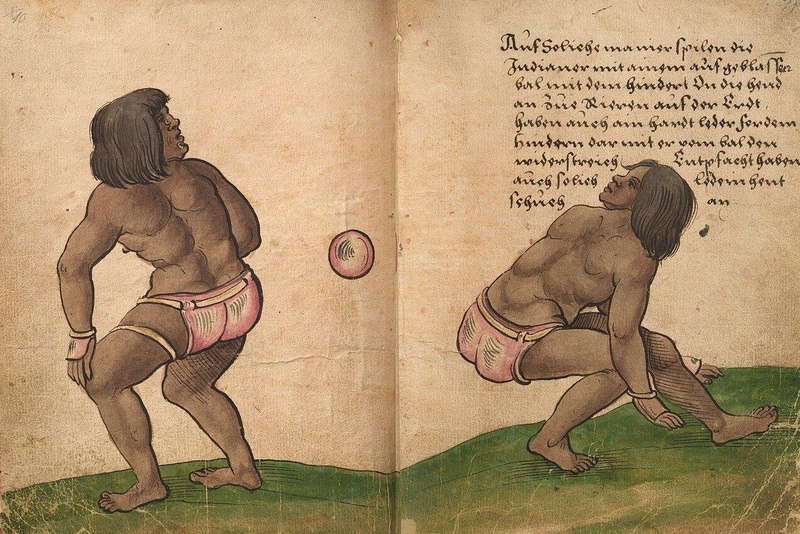 Auf Soliche manier spilen die
Indianer mit ainem auf geblassen
bal mit dem hindert On die hend
an Zue Rieren auf der Erdt,
haben auch ain hardt leder for dem
hindern dar mit er vom bal den
widerstreich Entpfacht haben
auch solich ledern hent
schuch an